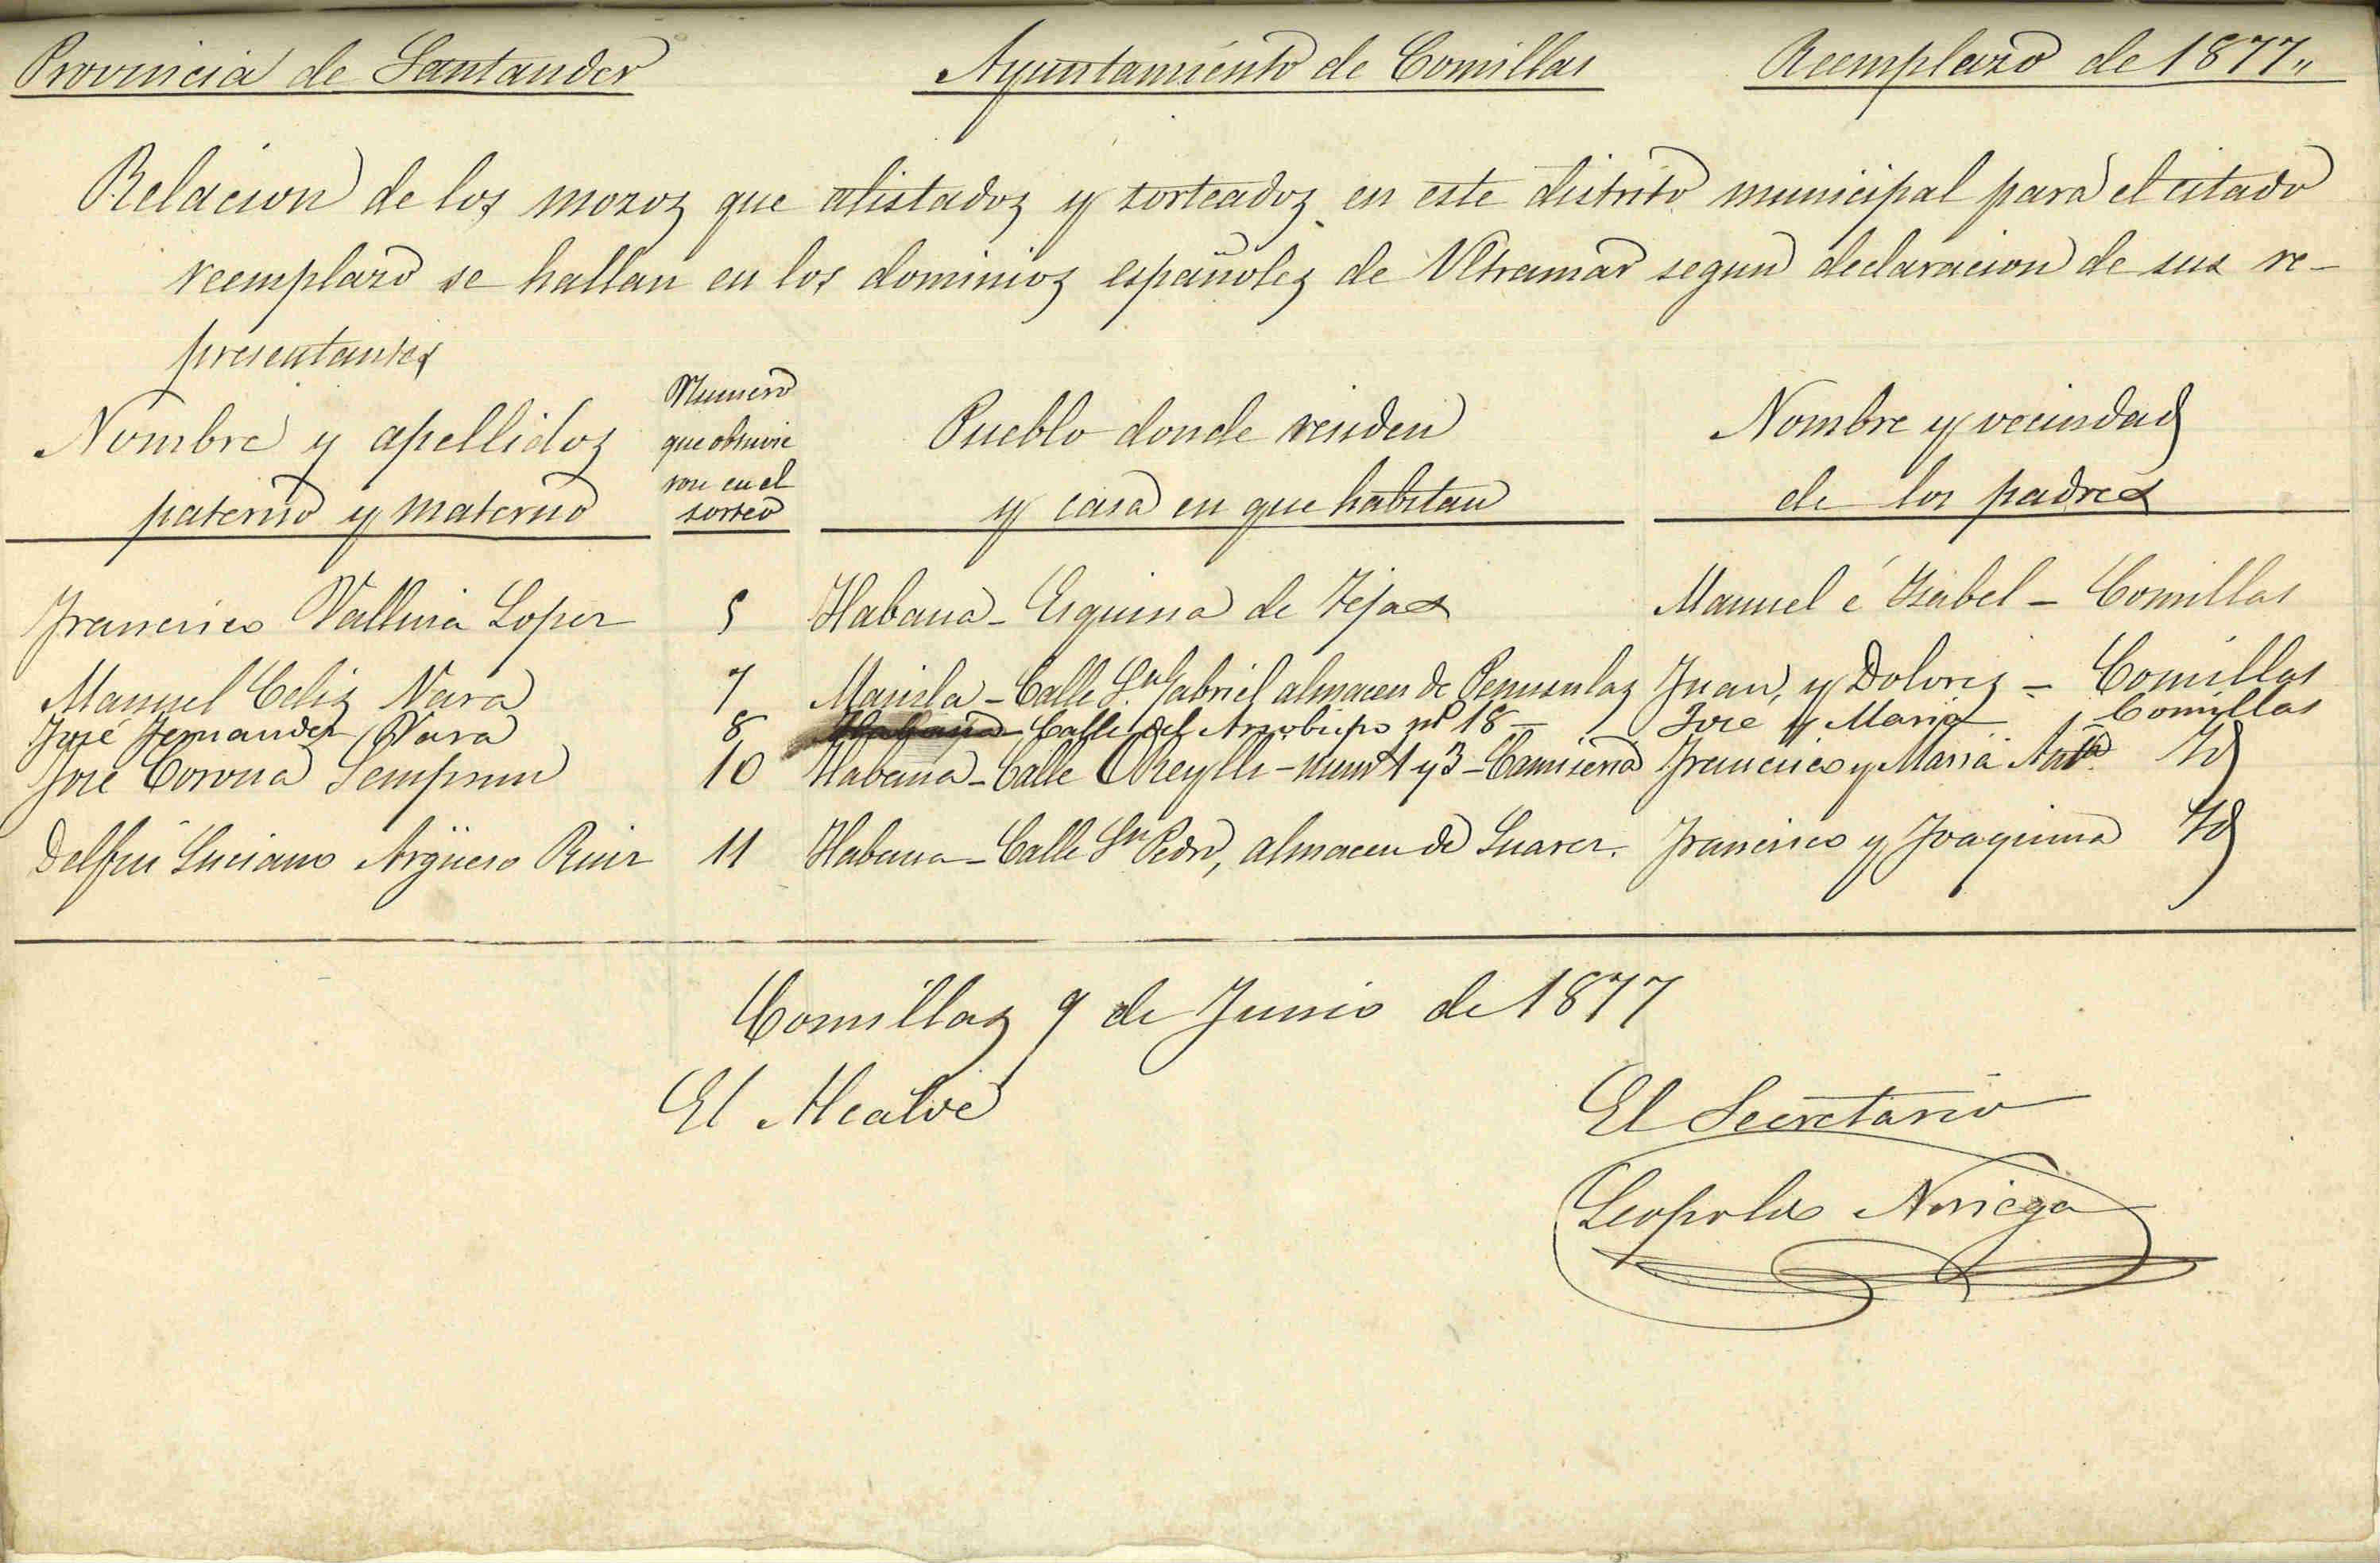 Provincia de Santander Ayuntamiento de Comillas Reemplazo de 1877,,
Relacion de los mozos que alistados y sorteados en este distrito municipal para el citado
reemplazo se hallan en los dominios españoles de Ultramar segun declaracion de sus re-
presentantes
Nombre y apellidos paterno y materno
Numero que obtuvie ron en el sorteo
Pueblo donde residen y casa en que habitan
Nombre y vecindad de los padres
Francisco Vallina Lopez 5 Habana - Esquina de Tejas Manuel é Isabel - Comillas
Manuel Celis Vara 7 Manila - Calle Sn. Gabriel almacen de Peninsulas Juan, y Dolores - Comillas
José Fernandez Vara 8 Habana - Calle del Arzobispo nº 18 - José y Maria - Comillas
José Corona Semprun 10 Habana - Calle OReylli - num 1 y 3 - Camiseria Francisco y Maria Antª Id
Delfin Luciano Argüeso Ruiz 11 Habana - Calle Sn Pedro, almacen de Suarez. Francisco y Joaquina Id
Comillas 9 de Junio de 1877
El Alcalde El Secretario
Leopoldo Noriega